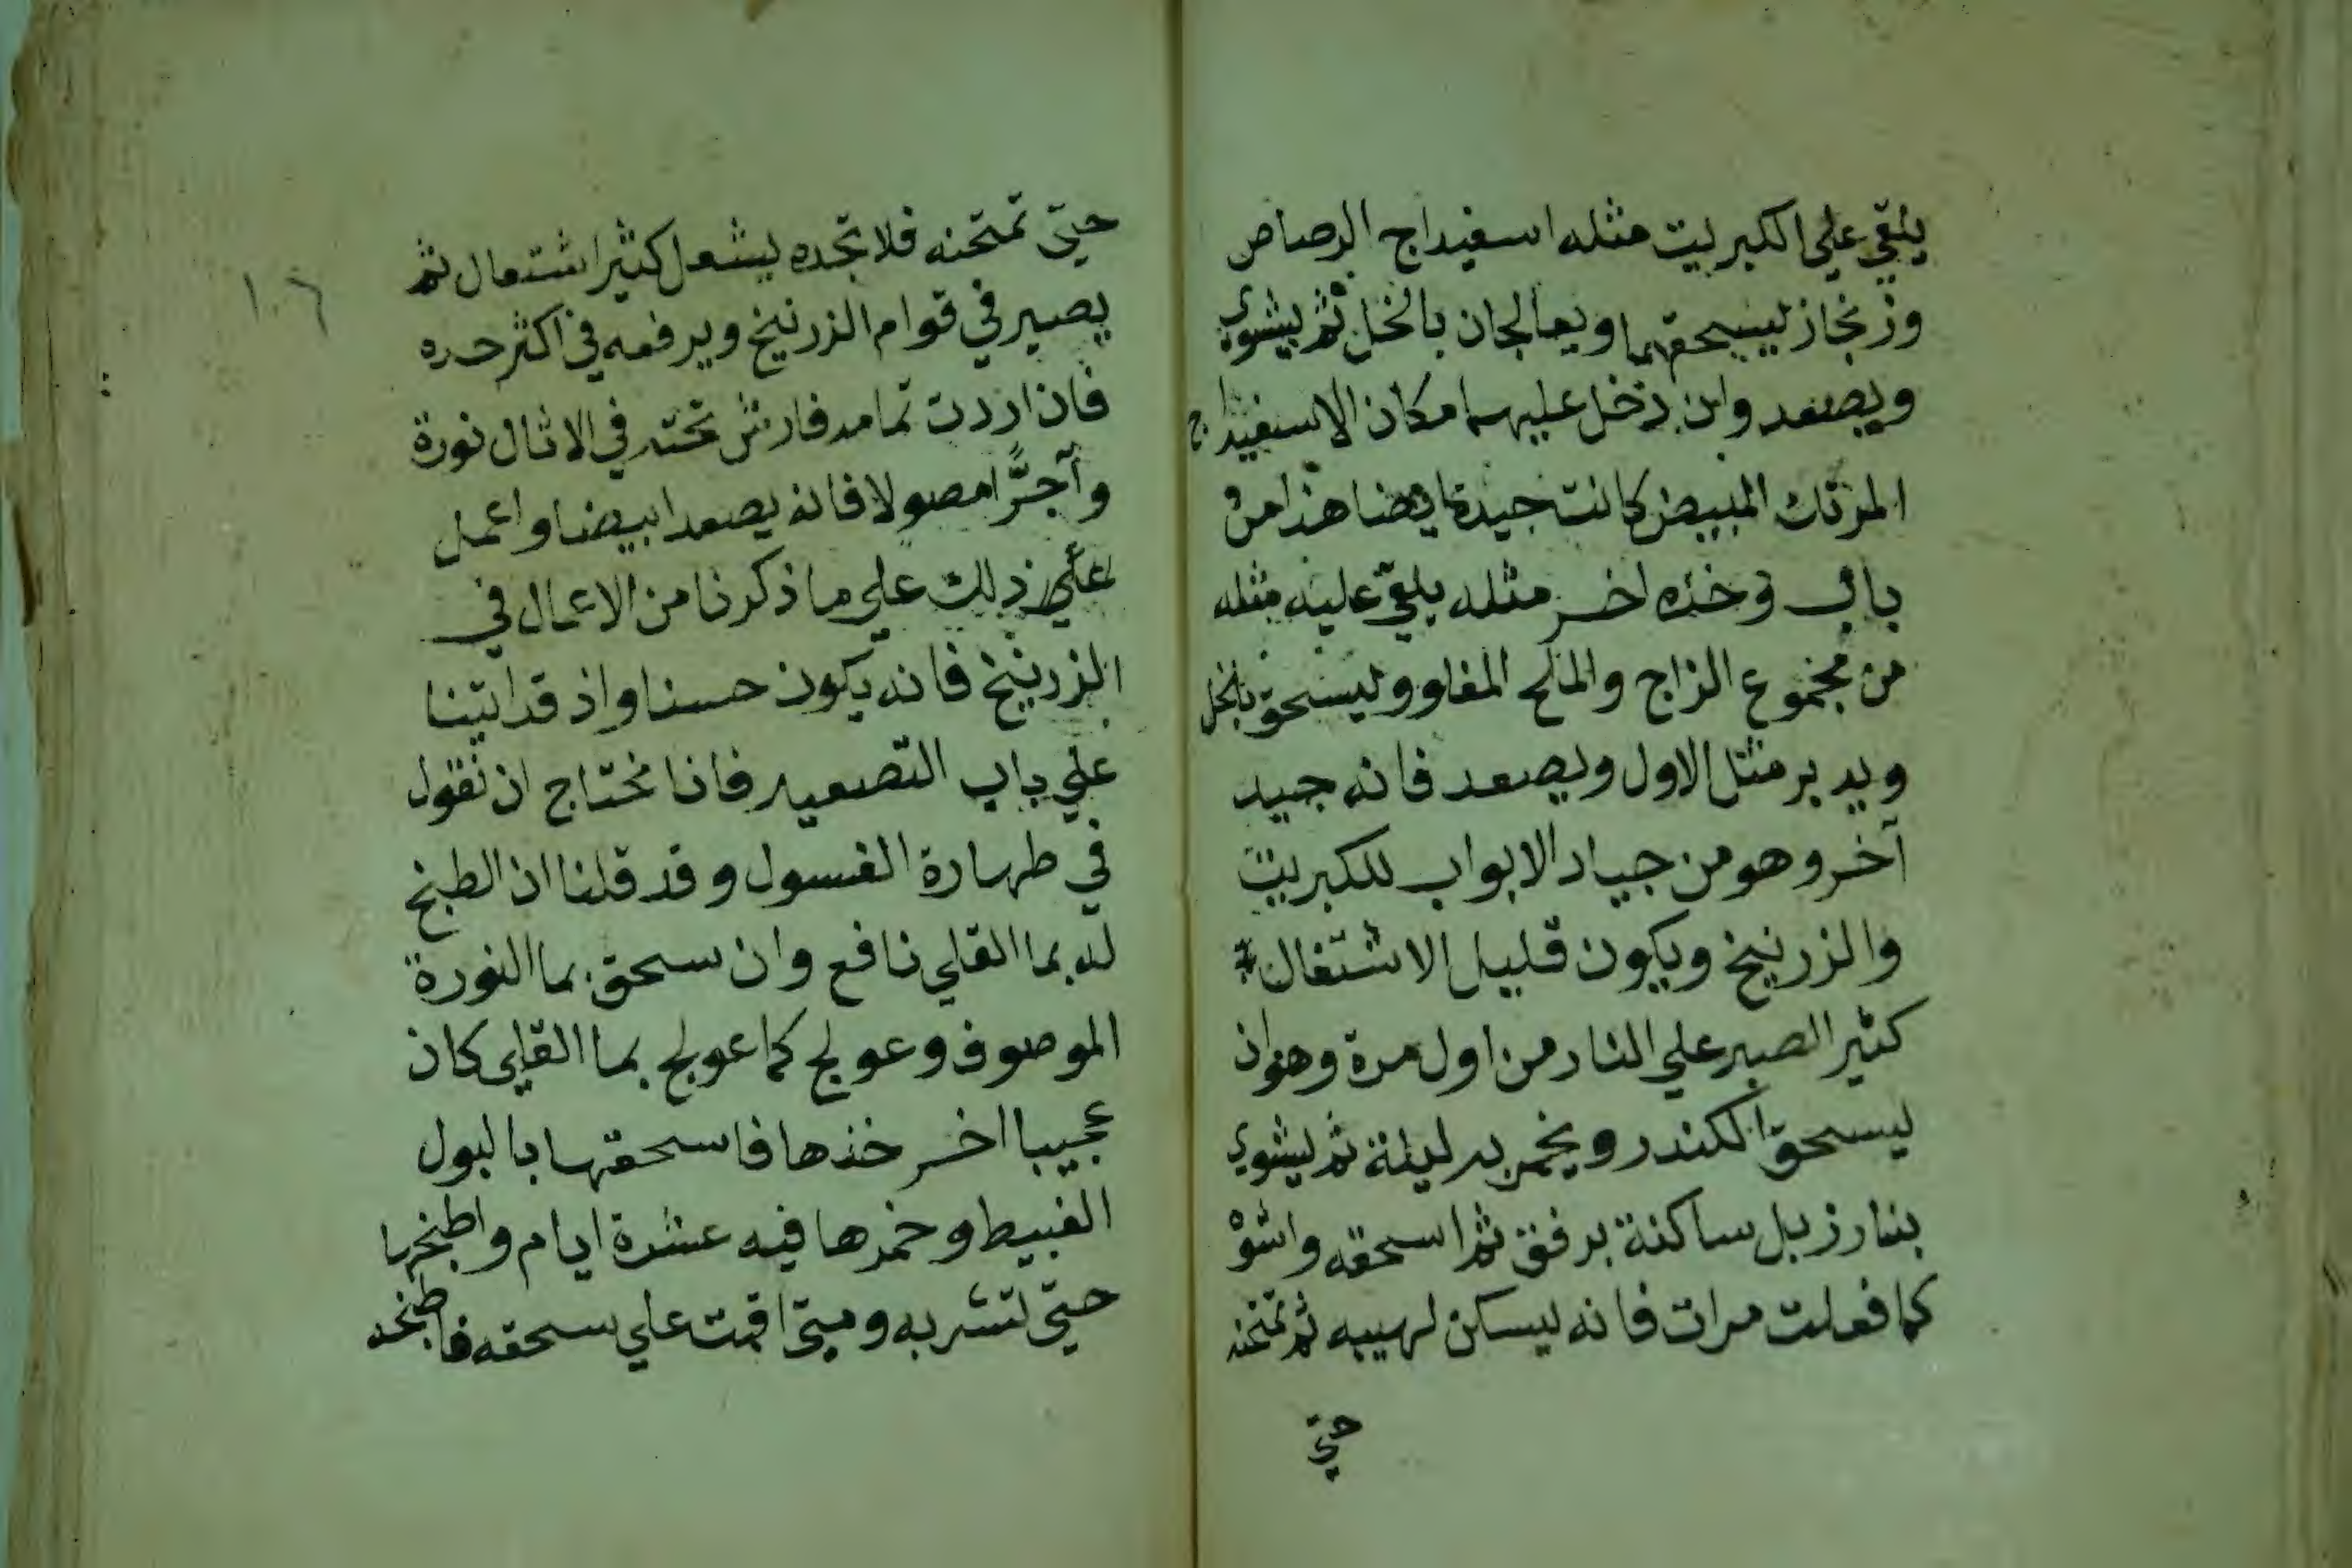 يلقي علي الكبريت مثله اسفيداج الرصاص
وزنجار يسحقهما ويعالجان بالخل ثم يشوي
ويصعد وان دخل عليهما مكان الاسفيداج
المرتك المبيض كانت جيدة ايضا هذا من
باب وخذه اخر مثله يلقي عليه مثله
من مجموع الزاج والملح المغلو ويسحق بالخل
ويدبر مثل الاول ويصعد فانه جيد
آخر وهو من جياد الابواب للكبريت
والزرنيخ ويكون قليل الاشتغال
كثير الصبر علي النار من اول مرة وهو ان
يسحق الكندر ويخمر به ليلة ثم يشوي
بنار زبل ساكنة برفق ثم اسحقه واشوْ
كما فعلت مرات فانه يسكن لهيبه ثم تمتحنه
حتي
حتي تمتحنه فلا تجده يشعل كثير اشتعال ثم
يصير في قوام الزرنيخ ويرفعه في اكثر حره
فان اردت تمامه فارش تحته في الاثال نورة
وآجرًّا مصولا فانه يصعد ابيضا واعمل
علي ذلك علي ما ذكرنا من الاعمال في
الزرنيخ فانه يكون حسنا واذ قد اتينا
علي باب التصعيد فانا نحتاج ان نقول
في طهارة الغسول وقد قلنا ان الطبخ
له بما القلي نافع وان سحق بما النورة
الموصوف وعولج كما عولج بما القلي كان
عجيبا اخر خذها فاسحقها بالبول
الغبيط وخمرها فيه عشرة ايام واطبخها
حتي تشربه ومتي اقمت علي سحقه فاطبخه
١٠٦